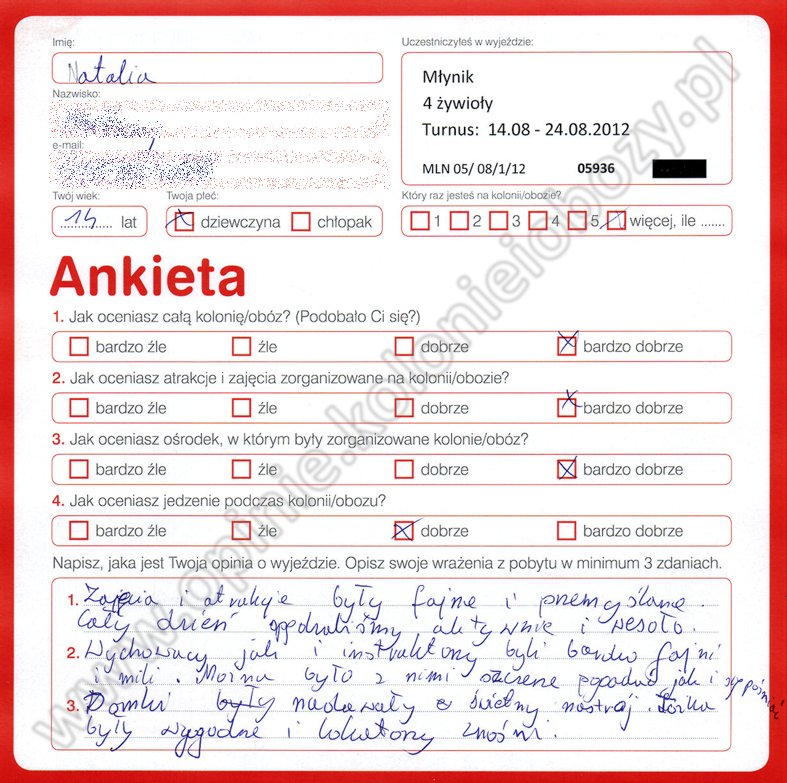 Imię:
Natalia
Nazwisko:
e-mail:
Twój wiek:
14 lat
Twoja płeć:
dziewczyna chłopak
Uczestniczyłeś w wyjeździe:
Młynik
4 żywioły
Turnus: 14.08 - 24.08.2012
MLN 05/ 08/1/12 05936
Który raz jesteś na kolonii/obozie?
1 2 3 4 5 więcej, ile .......
Ankieta
1. Jak oceniasz całą kolonię/obóz? (Podobało Ci się?)
bardzo źle źle dobrze bardzo dobrze
2. Jak oceniasz atrakcje i zajęcia zorganizowane na kolonii/obozie?
bardzo źle źle dobrze bardzo dobrze
3. Jak oceniasz ośrodek, w którym były zorganizowane kolonie/obóz?
bardzo źle źle dobrze bardzo dobrze
4. Jak oceniasz jedzenie podczas kolonii/obozu?
bardzo źle źle dobrze bardzo dobrze
Napisz, jaka jest Twoja opinia o wyjeździe. Opisz swoje wrażenia z pobytu w minimum 3 zdaniach.
1. Zajęcia i atrakcje były fajne i przemyślane.
Cały dzień spędzaliśmy aktywnie i wesoło.
2. Wychowawcy jak i instruktorzy byli bardzo fajni
i mili. Można było z nimi szczerze pogadać jak i
3. Domki były nadawały świetny nastrój. Łóżka
były wygodne i lokatorzy znośni.
www.opinie.kolonieiobozy.pl